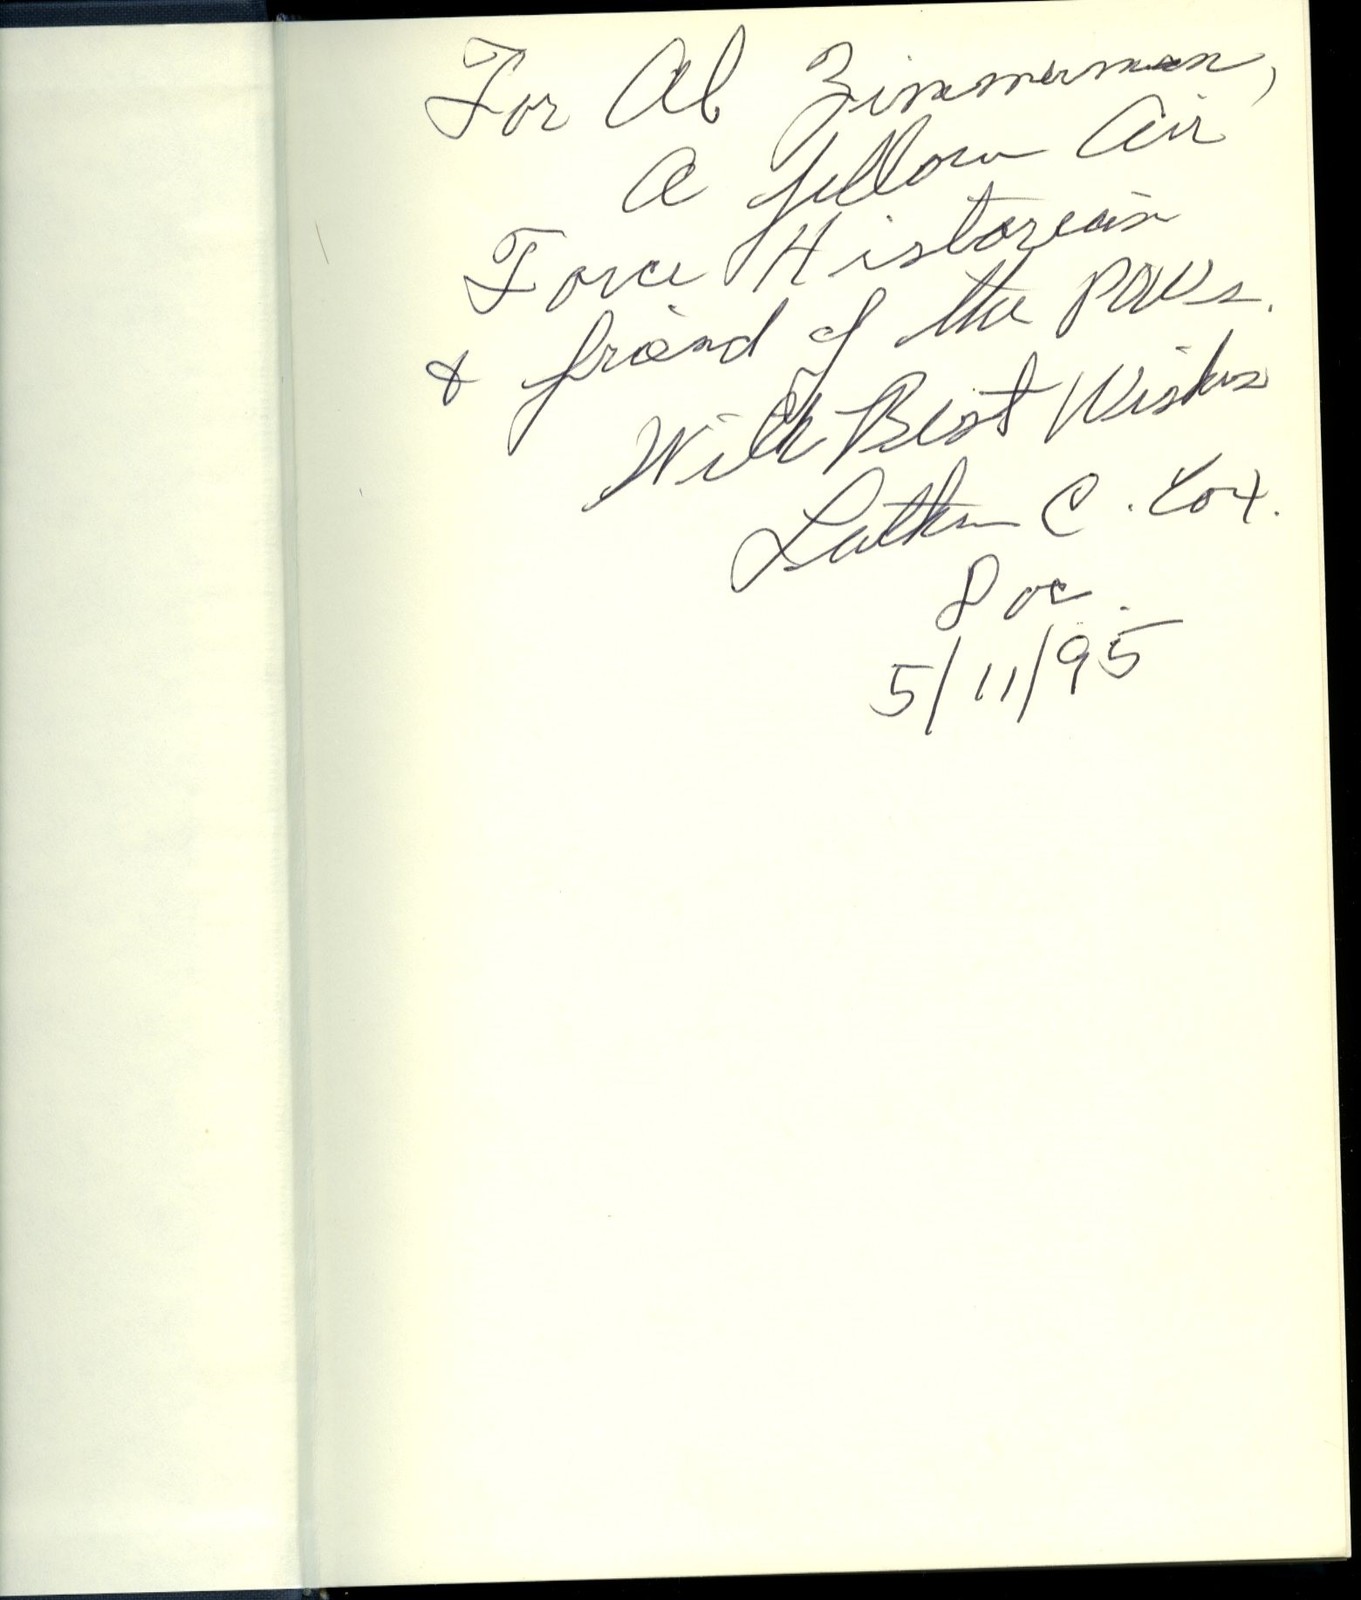 For Al Zimmerman,
A fellow Air
Force Historian
& friend of the POWs.
With Best Wishes
Luther C. Cox.
Doc.
5/11/95